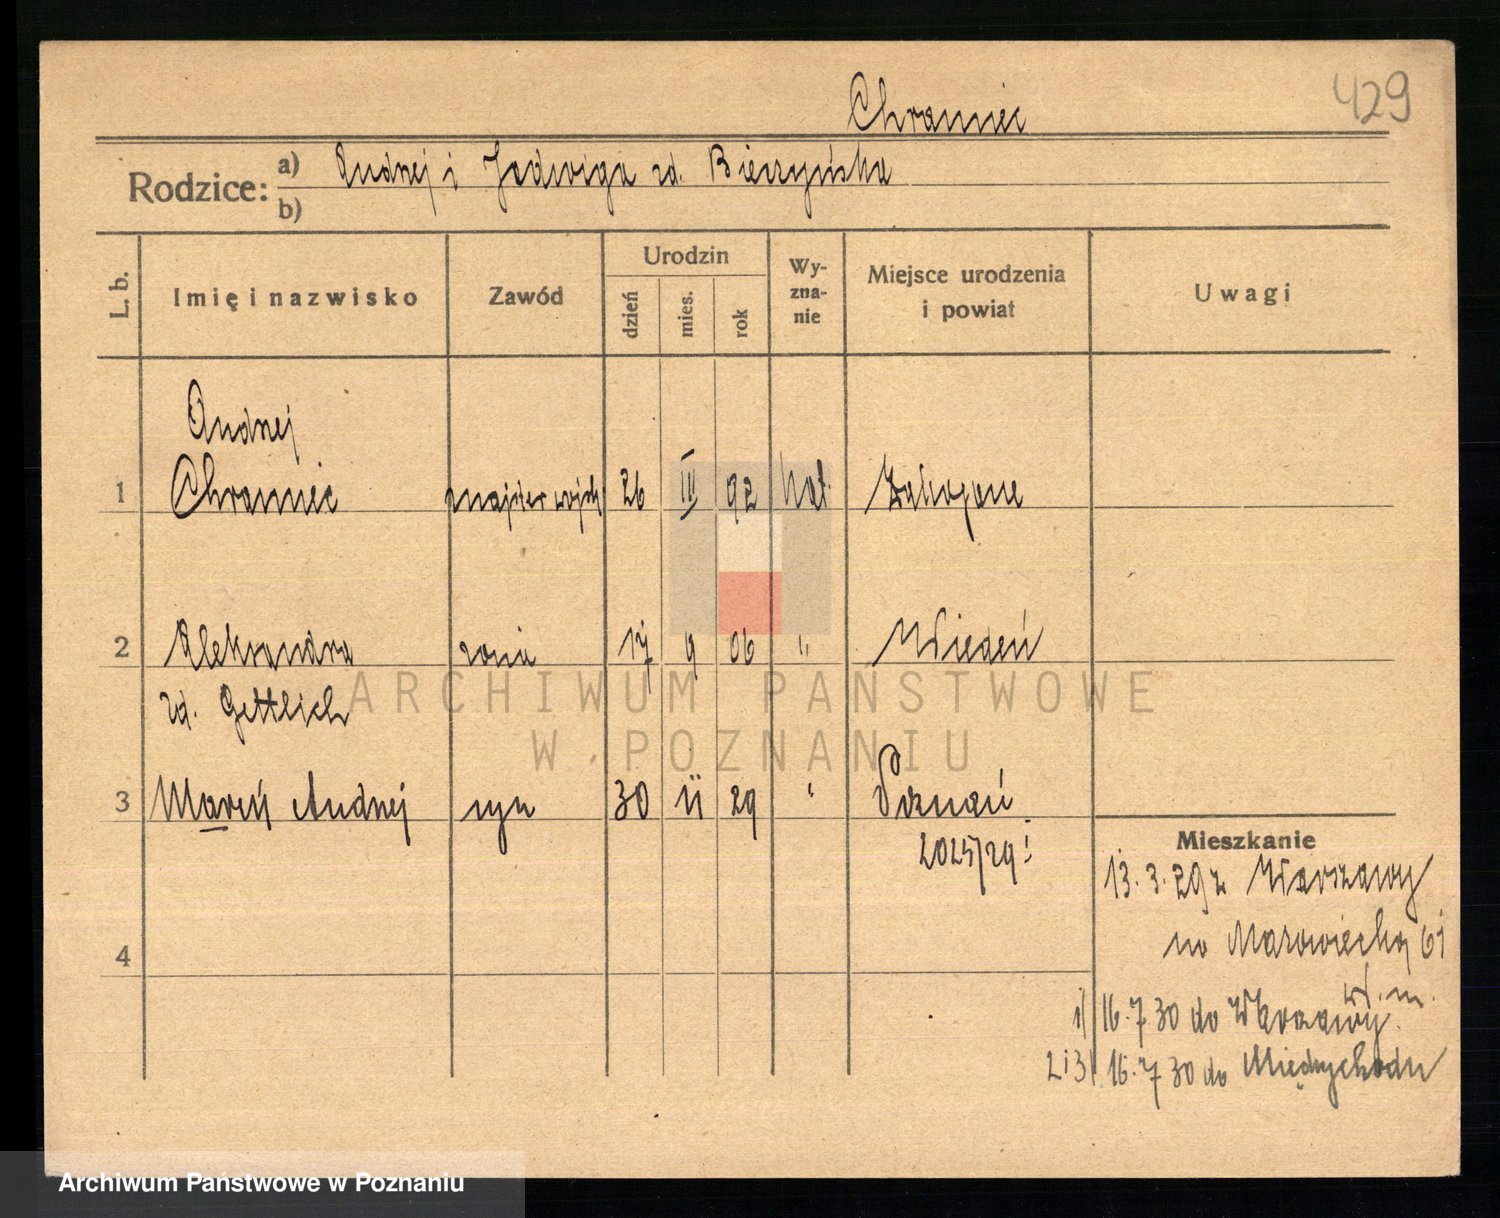 429
Chramiec
Rodzice: a) Andrzej i Jadwiga zd. Bieczyńska
b)
L. b. Imię i nazwisko Zawód Urodzin dzień mies. rok Wy-zna-nie Miejsce urodzenia i powiat Uwagi
Andrzej
1 Chramiec majster wojsk 26 III 92 kat. Zakopane
2 Aleksandra żona 17 9 06 " Wiedeń
zd. Gettlich
3 Maryń Andrzej syn 30 11 29 " Poznań
2025/29!
Mieszkanie
13.3.29 z Warszawy
na Mazowiecką 61
4
w. m.
1) 16.7 30 do Warszawy
2 i 3) 16.7 30 do Międzychodu
ARCHIWUM PAŃSTWOWE
W POZNANIU
Archiwum Państwowe w Poznaniu